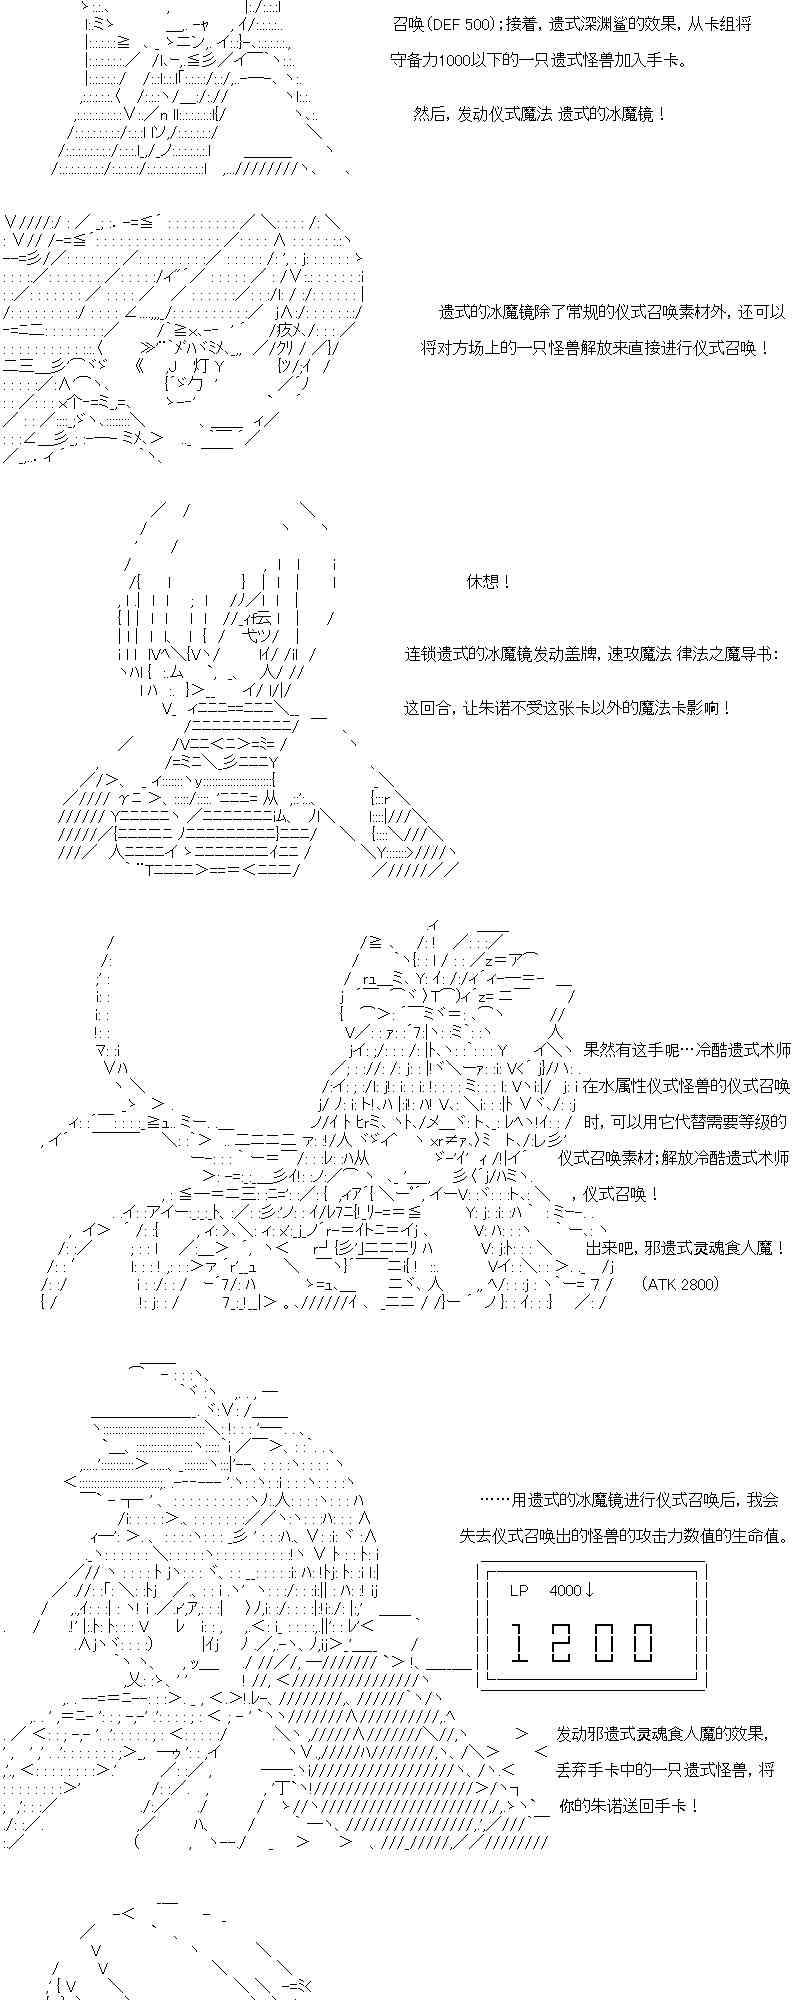 召唤（DEF 500）；接着，遗式深渊鲨的效果，从卡组将
守备力1000以下的一只遗式怪兽加入手卡。
然后，发动仪式魔法 遗式的冰魔镜！
遗式的冰魔镜除了常规的仪式召唤素材外，还可以
将对方场上的一只怪兽解放来直接进行仪式召唤！
休想！
连锁遗式的冰魔镜发动盖牌，速攻魔法 律法之魔导书：
这回合，让朱诺不受这张卡以外的魔法卡影响！
果然有这手呢…冷酷遗式术师
在水属性仪式怪兽的仪式召唤
时，可以用它代替需要等级的
仪式召唤素材；解放冷酷遗式术师
，仪式召唤！
出来吧，邪遗式灵魂食人魔！
（ATK 2800）
……用遗式的冰魔镜进行仪式召唤后，我会
失去仪式召唤出的怪兽的攻击力数值的生命值。
LP 4000↓
1200
发动邪遗式灵魂食人魔的效果，
丢弃手卡中的一只遗式怪兽，将
你的朱诺送回手卡！